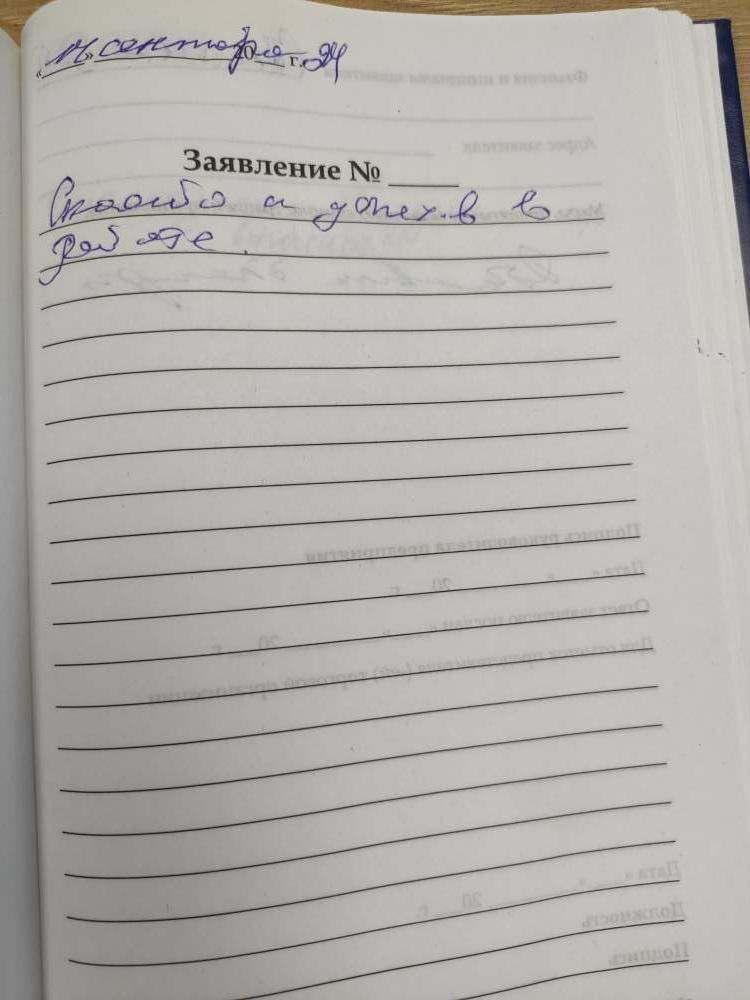 «14» сентября 20__ г. 24
Заявление № ____
Спасибо и успехов в
работе.